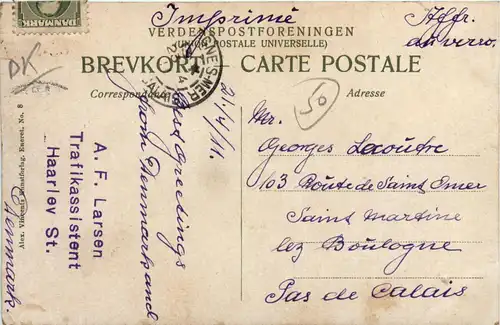 DANMARK
Imprimé
Affr.
au verso.
VERDENSPOSTFORENINGEN
(UNION POSTALE UNIVERSELLE)
BREVKORT — CARTE POSTALE
Correspondance
Adresse
DK
50
21/4/11.
Best Greetings
from Denmark and
A. F. Larsen
Trafikassistent
Haarlev St.
Denmark.
Alex. Vincents Kunstforlag. Eneret. No. 8
Mr.
Georges Lecoutre
103 Route de Saint Omer
Saint Martine
lez Boulogne
Pas de Calais